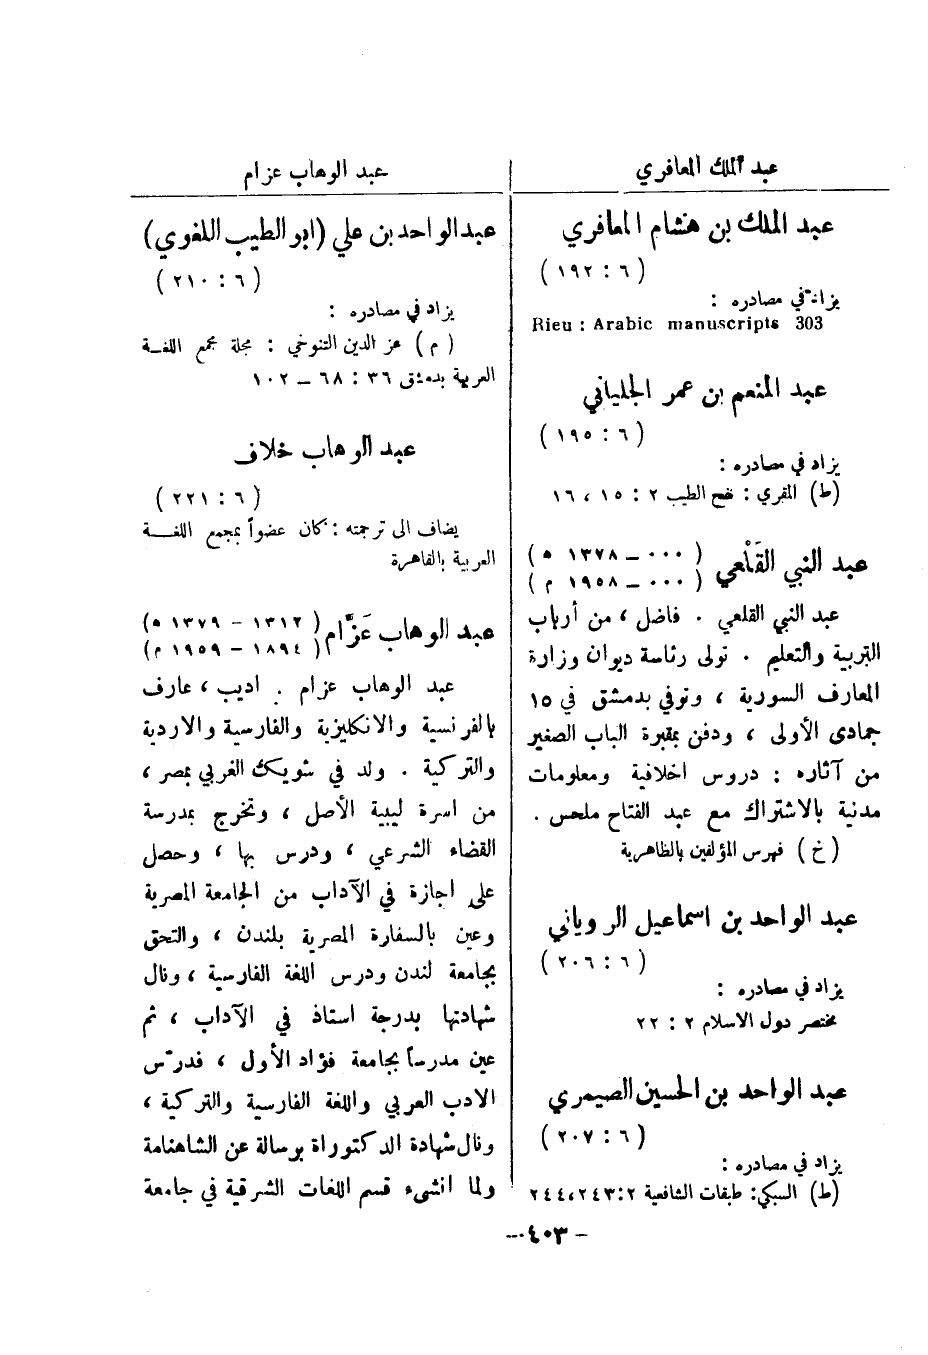 عبد الملك المعافري
عبد الملك بن هشام المعافري
( ٦ : ١٩٢ )
يزاد في مصادره :
Rieu : Arabic manuscripts 303
عبد المنعم بن عمر الجلياني
( ٦ : ١٩٥ )
يزاد في مصادره :
(ط) المقري : نفح الطيب ٢ : ١٥ ، ١٦
عبد النبي القَلْعي ( ٠٠٠ – ١٣٧٨ ه )
( ٠٠٠ – ١٩٥٨ م )
عبد النبي القلعي . فاضل ، من أرباب
التربية والتعليم . تولى رئاسة ديوان وزارة
المعارف السورية ، وتوفي بدمشق في ١٥
جمادى الأولى ، ودفن بمقبرة الباب الصغير
من آثاره : دروس اخلاقية ومعلومات
مدنية بالاشتراك مع عبد الفتاح ملحس .
( خ ) فهرس المؤلفين بالظاهرية
عبد الواحد بن اسماعيل الروياني
( ٦ : ٢٠٦ )
يزاد في مصادره :
مختصر دول الاسلام ٢ : ٢٢
عبد الواحد بن الحسين الصيمري
( ٦ : ٢٠٧ )
يزاد في مصادره :
(ط) السبكي: طبقات الشافعية ٢:٢٤٣،٢٤٤
عبد الوهاب عزام
عبد الواحد بن علي (ابو الطيب اللغوي)
( ٦ : ٢١٠ )
يزاد في مصادره :
( م ) عز الدين التنوخي : مجلة مجمع اللغــة
العربية بدمشق ٣٦ : ٦٨ – ١٠٢
عبد الوهاب خلاف
( ٦ : ٢٢١ )
يضاف الى ترجمته : كان عضواً بمجمع اللغــــة
العربية بالقاهرة
عبد الوهاب عَزَّام ( ١٣١٢ – ١٣٧٩ ه )
( ١٨٩٤ – ١٩٥٩ م )
عبد الوهاب عزام . اديب ، عارف
بالفرنسية والانكليزية والفارسية والاردية
والتركية . ولد في شوبك الغربي بمصر ،
من اسرة ليبية الأصل ، وتخرج بمدرسة
القضاء الشرعي ، ودرس بها ، وحصل
على اجازة في الآداب من الجامعة المصرية
وعين بالسفارة المصرية بلندن ، والتحق
بجامعة لندن ودرس اللغة الفارسية ، ونال
شهادتها بدرجة استاذ في الآداب ، ثم
عين مدرساً بجامعة فؤاد الأول ، فدرّس
الادب العربي واللغة الفارسية والتركية ،
ونال شهادة الدكتوراة برسالة عن الشاهنامة
ولما انشىء قسم اللغات الشرقية في جامعة
– ٤٠٣ –